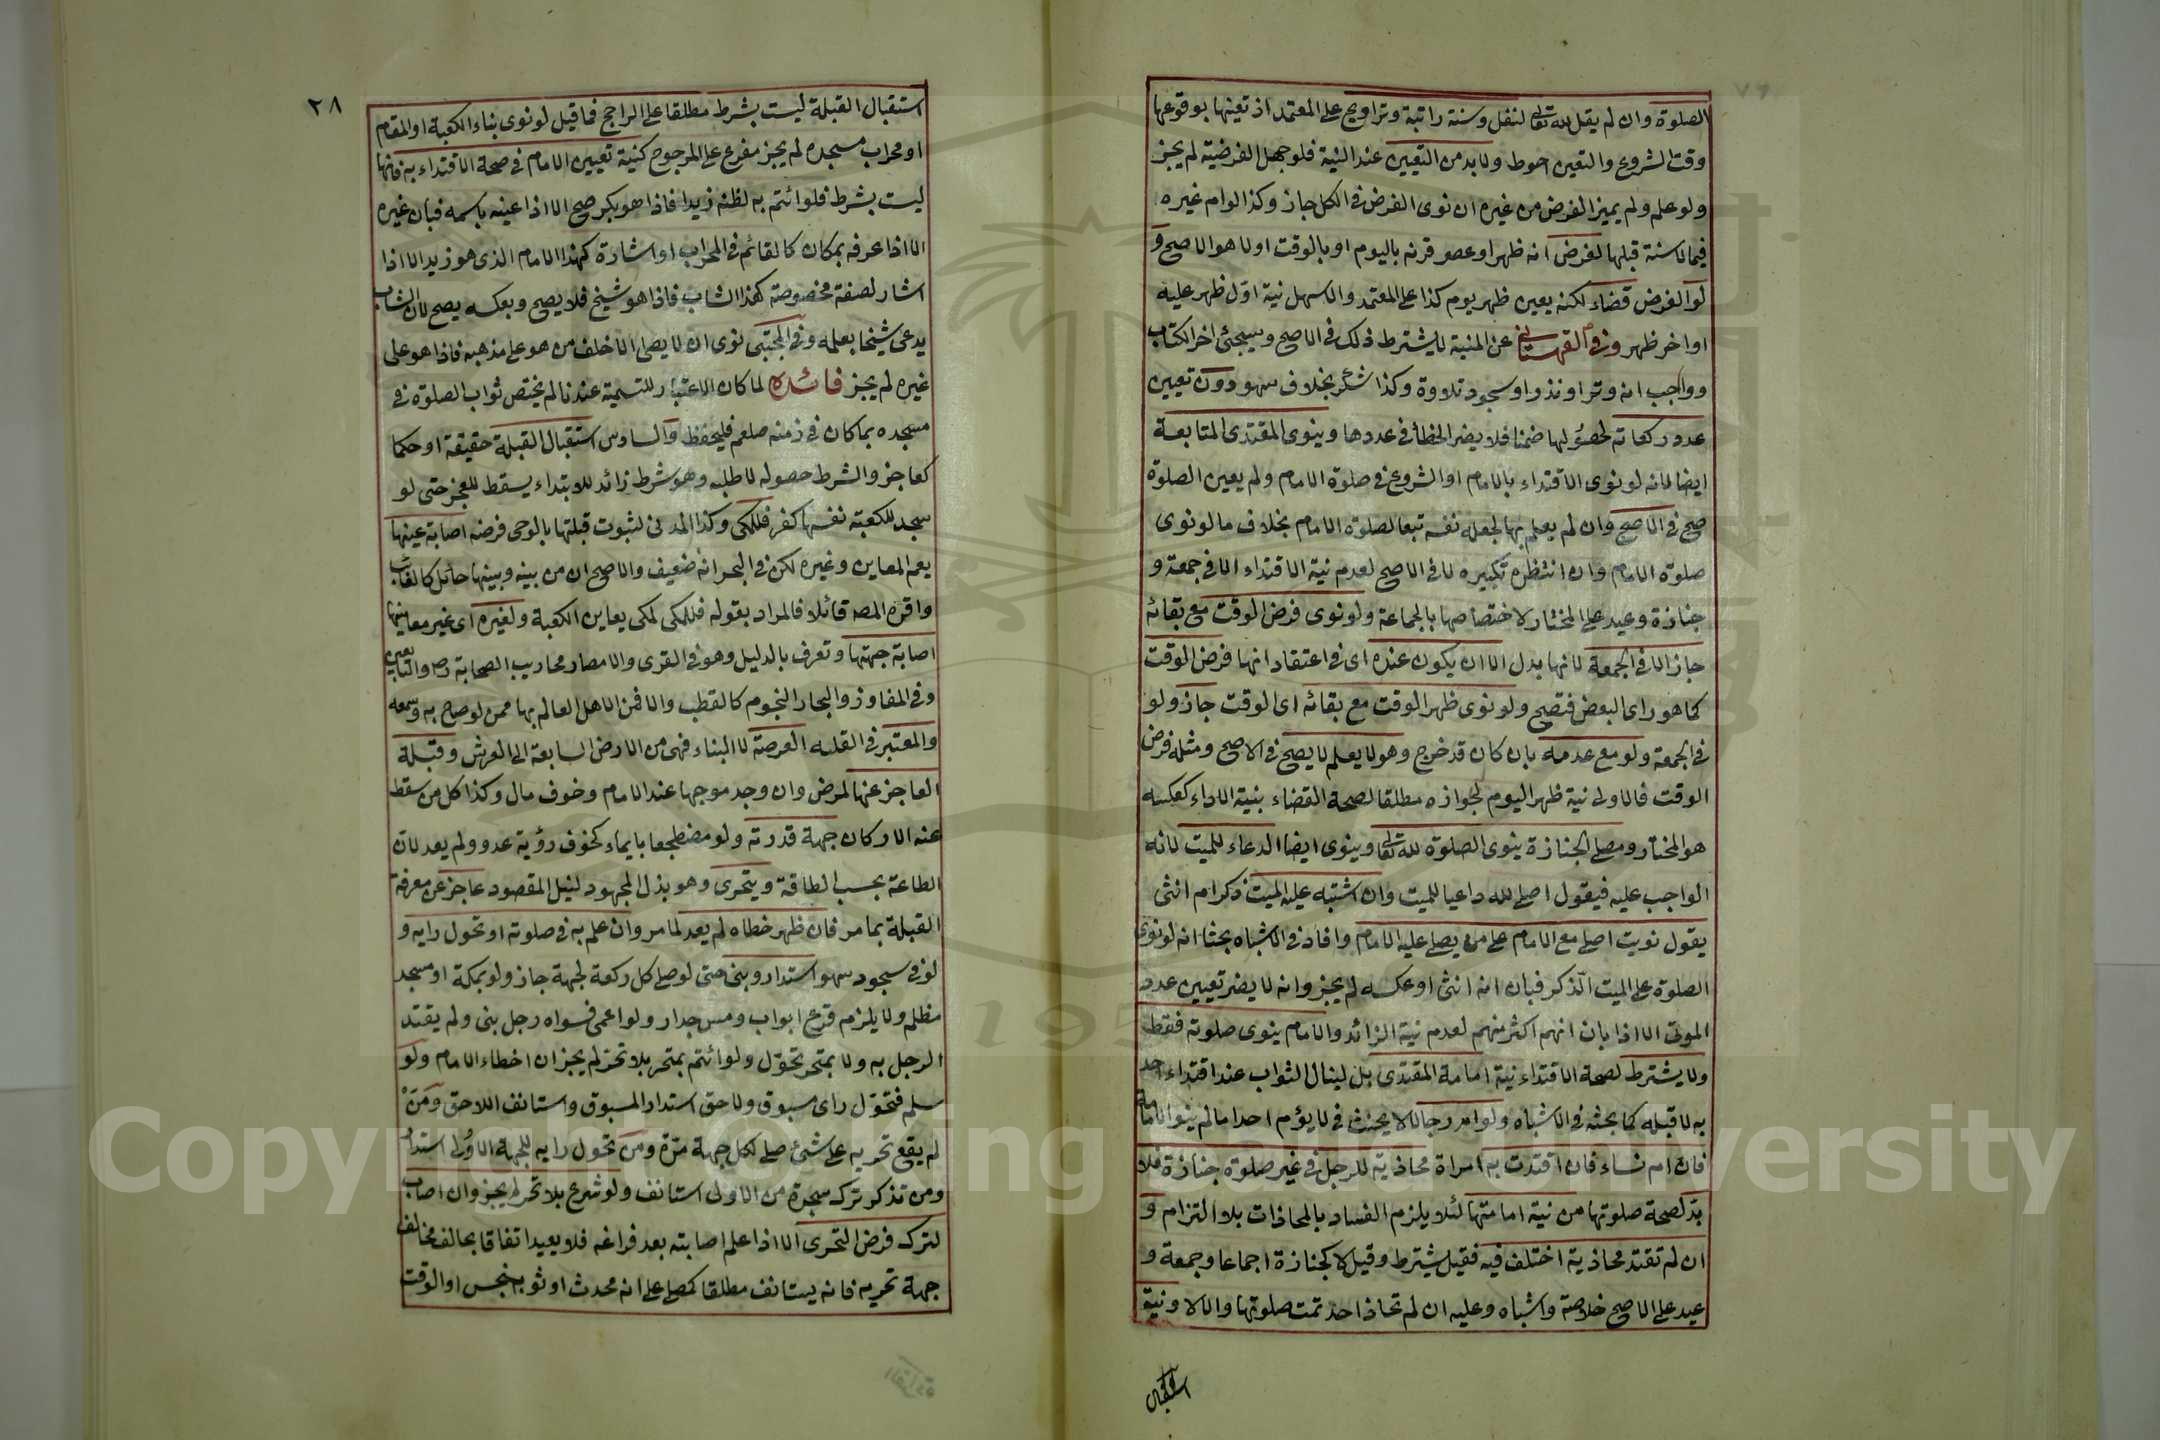 الصلوة وان لم يقل لله تعالى لنفل وسنة راتبة وتراويح على المعتمد اذ تعينها بوقوعها
وقت الشروع والتعيين احوط ولابد من التعيين عند النية فلو جهل الفرضية لم يجز
ولو علم ولم يميز الفرض من غيره ان نوى الفرض فى الكل جاز وكذا لو ام غيره
فيما لا سنة قبلها لفرض انه ظهر او عصر قرنه باليوم او بالوقت اولا هو الاصح و
لو الفرض قضاء لكنه يعين ظهر يوم كذا على المعتمد والاسهل نية اول ظهر عليه
او اخر ظهر وفى القهستانى عن المنية لا يشترط ذلك فى الاصح وسيجئ اخر الكتاب
وواجب انه وتر او نذر او سجود تلاوة وكذا شكر بخلاف سهو دون تعيين
عدد ركعاته لحصولها ضمنا فلا يضر الخطأ فى عددها وينوى المقتدى المتابعة
ايضا لانه لو نوى الاقتداء بالامام او الشروع فى صلوة الامام ولم يعين الصلوة
صح فى الاصح وان لم يعلم بها لجعله نفسه تبعا لصلوة الامام بخلاف ما لو نوى
صلوة الامام وان انتظره تكبيره لا فى الاصح لعدم نية الاقتداء الا فى جمعة و
جنازة وعيد على المختار لاختصاصها بالجماعة ولو نوى فرض الوقت مع بقائه
جاز الا فى الجمعة لانها بدل الا ان يكون عنده اى فى اعتقاد انها فرض الوقت
كما هو راى البعض فتصح ولو نوى ظهر الوقت مع بقائه اى الوقت جاز ولو
فى الجمعة ولو مع عدمه بان كان قد خرج وهو لا يعلم لا يصح فى الاصح ومثله فرض
الوقت فالاولى نية ظهر اليوم لجوازه مطلقا لصحة القضاء بنية الاداء كعكسه
هو المختار ومصلى الجنازة ينوى الصلوة لله تعالى وينوى ايضا الدعاء للميت لانه
الواجب عليه فيقول اصلى لله داعيا للميت وان اشتبه عليه الميت ذكر ام انثى
يقول نويت اصلى مع الامام على من يصلى عليه الامام وافاد فى الاشباه بحثا انه لو نوى
الصلوة على الميت الذكر فبان انه انثى او عكسه لم يجز وانه لا يضر تعيين عدد
الموتى الا اذا بان انهم اكثر منهم لعدم نية الزائد والامام ينوى صلوته فقط
ولا يشترط لصحة الاقتداء نية امامة المقتدى بل لينال الثواب عند اقتداء احد
به لا قبله كما بحثه فى الاشباه ولو ام رجالا لا يحنث فى لا يؤم احدا ما لم ينو الامامة
فان ام نساء فان اقتدت به امراة محاذية للرجل فى غير صلوة جنازة فلا
بد لصحة صلوتها من نية امامتها لئلا يلزم الفساد بالمحاذات بلا التزام و
ان لم تقتد محاذية اختلف فيه فقيل يشترط وقيل لا كجنازة اجماعا وجمعة و
عيد على الاصح خلاصة واشباه وعليه ان لم تحاذ احد تمت صلوتها والا لا ونية
استقبال
٢٨
استقبال القبلة ليست بشرط مطلقا على الراجح فما قيل لو نوى بناء الكعبة او المقام
او محراب مسجده لم يجز مفرع على المرجوح كنية تعيين الامام فى صحة الاقتداء به فانها
ليست بشرط فلو ائتم به لظنه زيدا فاذا هو بكر صح الا اذا عينه باسمه فبان غيره
الا اذا عرفه بمكان كالقائم فى المحراب او اشارة كهذا الامام الذى هو زيد الا اذا
اشار لصفة مخصوصة كهذا الشاب فاذا هو شيخ فلا يصح وبعكسه يصح لان الشاب
يدعى شيخا بعلمه وفى المجتبى نوى ان لا يصلى الا خلف من هو على مذهبه فاذا هو على
غيره لم يجز فائدة لما كان الاعتبار للتسمية عندنا لم يختص ثواب الصلوة فى
مسجده بما كان فى زمنه صلعم فليحفظ والسادس استقبال القبلة حقيقة او حكما
كعاجز والشرط حصوله لا طلبه وهو شرط زائد للابتداء يسقط للعجز حتى لو
سجد للكعبة نفسها كفر فللمكى وكذا المدنى لثبوت قبلتها بالوحى فرضه اصابة عينها
يعم المعاين وغيره لكن فى البحر انه ضعيف والاصح ان من بينه وبينها حائل كالغائب
واقره المصه قائلا فالمراد بقوله فللمكى لمكى يعاين الكعبة ولغيره اى غير معاينها
اصابة جهتها وتعرف بالدليل وهو فى القرى والامصار محاريب الصحابة رض والتابعين
وفى المفاوز والبحار النجوم كالقطب والا فمن الاهل العالم بها ممن لو صاح به وسمعه
والمعتبر فى القبلة العرصة لا البناء فهى من الارض السابعة الى العرش وقبلة
العاجز عنها لمرض وان وجد موجها عند الامام وخوف مال وكذا كل من سقط
عنه الاركان جهة قدرته ولو مضطجعا بايماء كخوف رؤية عدو ولم يعد لان
الطاعة بحسب الطاقة ويتحرى وهو بذل المجهود لنيل المقصود عاجز عن معرفة
القبلة بما مر فان ظهر خطاه لم يعد لما مر وان علم به فى صلوته او تحول رايه و
لو فى سجود سهو استدار وبنى حتى لو صلى كل ركعة لجهة جاز ولو بمكة او مسجد
مظلم ولا يلزم قرع ابواب ومس جدار ولو اعمى فسواه رجل بنى ولم يقتد
الرجل به ولا بمتحر تحول ولو ائتم بمتحر بلا تحر لم يجز ان اخطاء الامام ولو
سلم فتحول راى مسبوق ولاحق استدار المسبوق واستانف اللاحق ومن
لم يقع تحريه على شئ صلى لكل جهة مرة ومن تحول رايه للجهة الاولى استدار
ومن تذكر ترك سجدة من الاولى استانف ولو شرع بلا تحر لم يجز وان اصاب
لترك فرض التحرى الا اذا علم اصابته بعد فراغه فلا يعيد اتفاقا بخالف مخالف
جهة تحريه فانه يستانف مطلقا كمصلى على انه محدث او ثوبه نجس او الوقت
Copyright © King Saud University